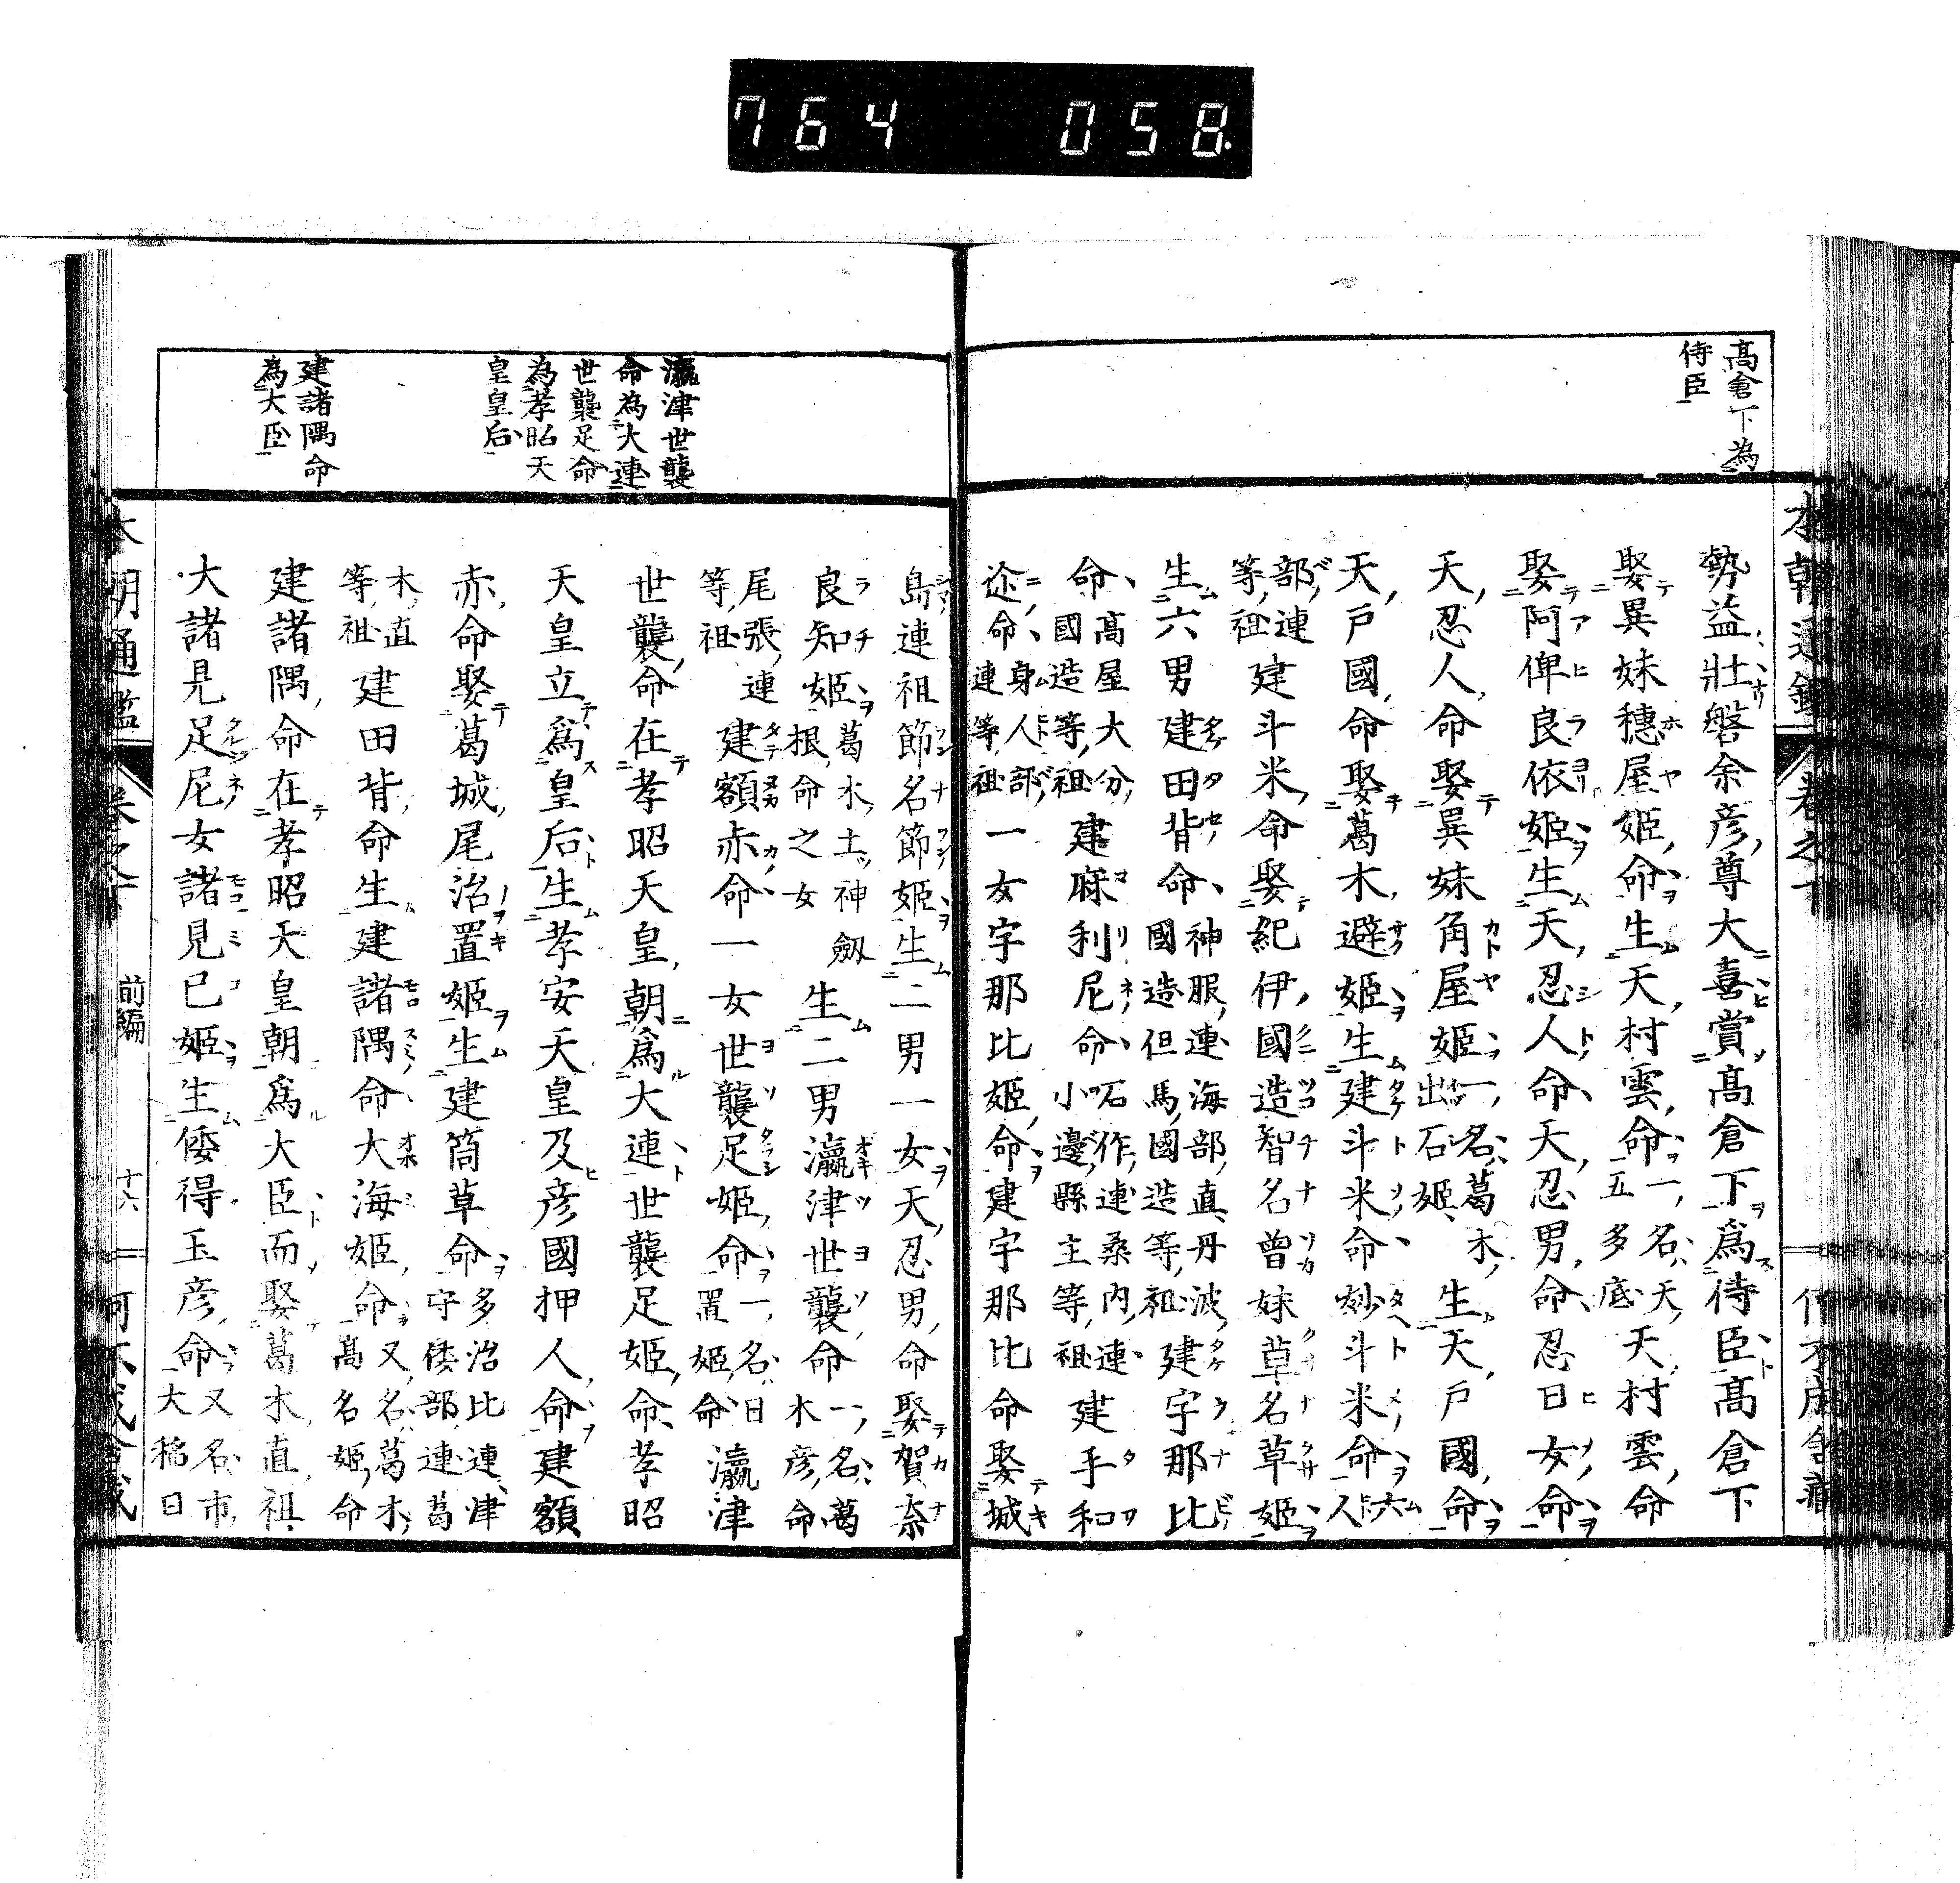 764 058
高倉下為
侍臣
勢益壯磐余彦尊大喜賞高倉下爲侍臣高倉下
娶異妹穗屋姬命生天村雲命一名天五多底天村雲命
娶阿俾良依姬生天忍人命天忍男命忍日女命
天忍人命娶異妹角屋姬一名葛木出石姬生天戸國命
天戸國命娶葛木避姬生建斗米命妙斗米命六人
部連等祖建斗米命娶紀伊國造智名曾妹草名草姬
生六男建田背命神服連海部直丹波國造但馬國造等祖建宇那比
命高屋大分國造等祖建麻利尼命石作連桑内連小邊縣主等祖建手和
迩命身人部連等祖一女宇那比姬命建宇那比命娶城
島連祖節名節姬生二男一女天忍男命娶賀奈
良知姬葛木土神劔根命之女生二男瀛津世襲命一名葛木彦命
尾張連等祖建額赤命一女世襲足姬命一名日置姬命瀛津
世襲命在孝昭天皇朝爲大連世襲足姬命孝昭
天皇立爲皇后生孝安天皇及彦國押人命建額
赤命娶葛城尾治置姬生建筒草命多治比連津守倭部連葛
木直等祖建田背命生建諸隅命大海姬命又名葛木高名姬命
建諸隅命在孝昭天皇朝爲大臣而娶葛木直祖
大諸見足尼女諸見已姬生倭得玉彦命又名市大稲日
瀛津世襲
命為大連
世襲足命
為孝昭天
皇皇后
建諸隅命
為大臣
本朝通鑑 卷之下 前編 十六